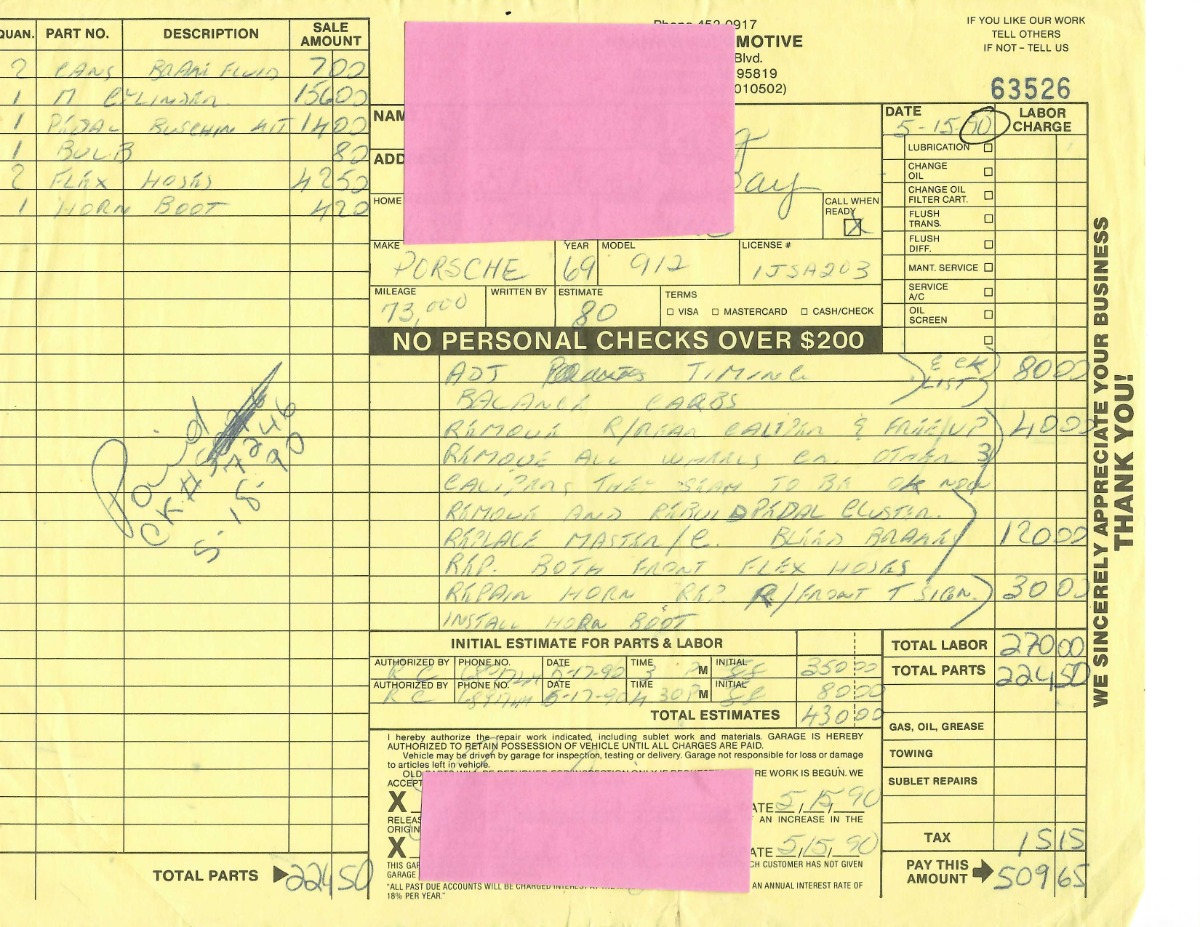 QUAN. PART NO. DESCRIPTION SALE AMOUNT
2 CANS BRAKE FLUID 7 00
1 M CYLINDER 156 00
1 PEDAL BUSCHIN KIT 14 00
1 BULB 80
2 FLEX HOSES 42 50
1 HORN BOOT 4 20
Paid
CK# 7246
5-18-90
TOTAL PARTS 224 50
0917
MOTIVE
Blvd.
95819
010502)
IF YOU LIKE OUR WORK
TELL OTHERS
IF NOT – TELL US
63526
NAM
ADD
HOME
Bay
CALL WHEN READY X
DATE 5-15-90
LABOR CHARGE
LUBRICATION
CHANGE OIL
CHANGE OIL FILTER CART.
FLUSH TRANS.
FLUSH DIFF.
MANT. SERVICE
SERVICE A/C
OIL SCREEN
MAKE PORSCHE YEAR 69 MODEL 912 LICENSE # 1JSA203
MILEAGE 73,000 WRITTEN BY ESTIMATE 80 TERMS VISA MASTERCARD CASH/CHECK
NO PERSONAL CHECKS OVER $200
ADJ TIMING & CK LIST 80 00
BALANCE CARBS
REMOVE R/REAR CALIPER & FREE UP 40 00
REMOVE ALL WHEELS CK. OTHER 3
CALIPERS THEY SEAM TO BE OK NOW
REMOVE AND REBUILD PEDAL CLUSTER.
REPLACE MASTER/C. BLEED BRAKES 120 00
REP. BOTH FRONT FLEX HOSES
REPAIR HORN REP. R/FRONT T SIGN. 30 00
INSTALL HORN BOOT
INITIAL ESTIMATE FOR PARTS & LABOR
AUTHORIZED BY R C PHONE NO. DATE 5-17-90 TIME 3 PM INITIAL 350 00
AUTHORIZED BY R C PHONE NO. DATE 5-17-90 TIME 4 30 PM INITIAL 80 00
TOTAL ESTIMATES 430 00
TOTAL LABOR 270 00
TOTAL PARTS 224 50
GAS, OIL, GREASE
TOWING
SUBLET REPAIRS
TAX 15 15
PAY THIS AMOUNT 509 65
I hereby authorize the repair work indicated, including sublet work and materials. GARAGE IS HEREBY
AUTHORIZED TO RETAIN POSSESSION OF VEHICLE UNTIL ALL CHARGES ARE PAID.
Vehicle may be driven by garage for inspection, testing or delivery. Garage not responsible for loss or damage
to articles left in vehicle.
RE WORK IS BEGUN. WE
ACCEPT
X ATE 5/15/90
RELEAS AN INCREASE IN THE
ORIGIN
X ATE 5/15/90
THIS GAR CH CUSTOMER HAS NOT GIVEN
GARAGE
"ALL PAST DUE ACCOUNTS WILL BE CHARGED INTEREST AN ANNUAL INTEREST RATE OF
18% PER YEAR."
WE SINCERELY APPRECIATE YOUR BUSINESS
THANK YOU!